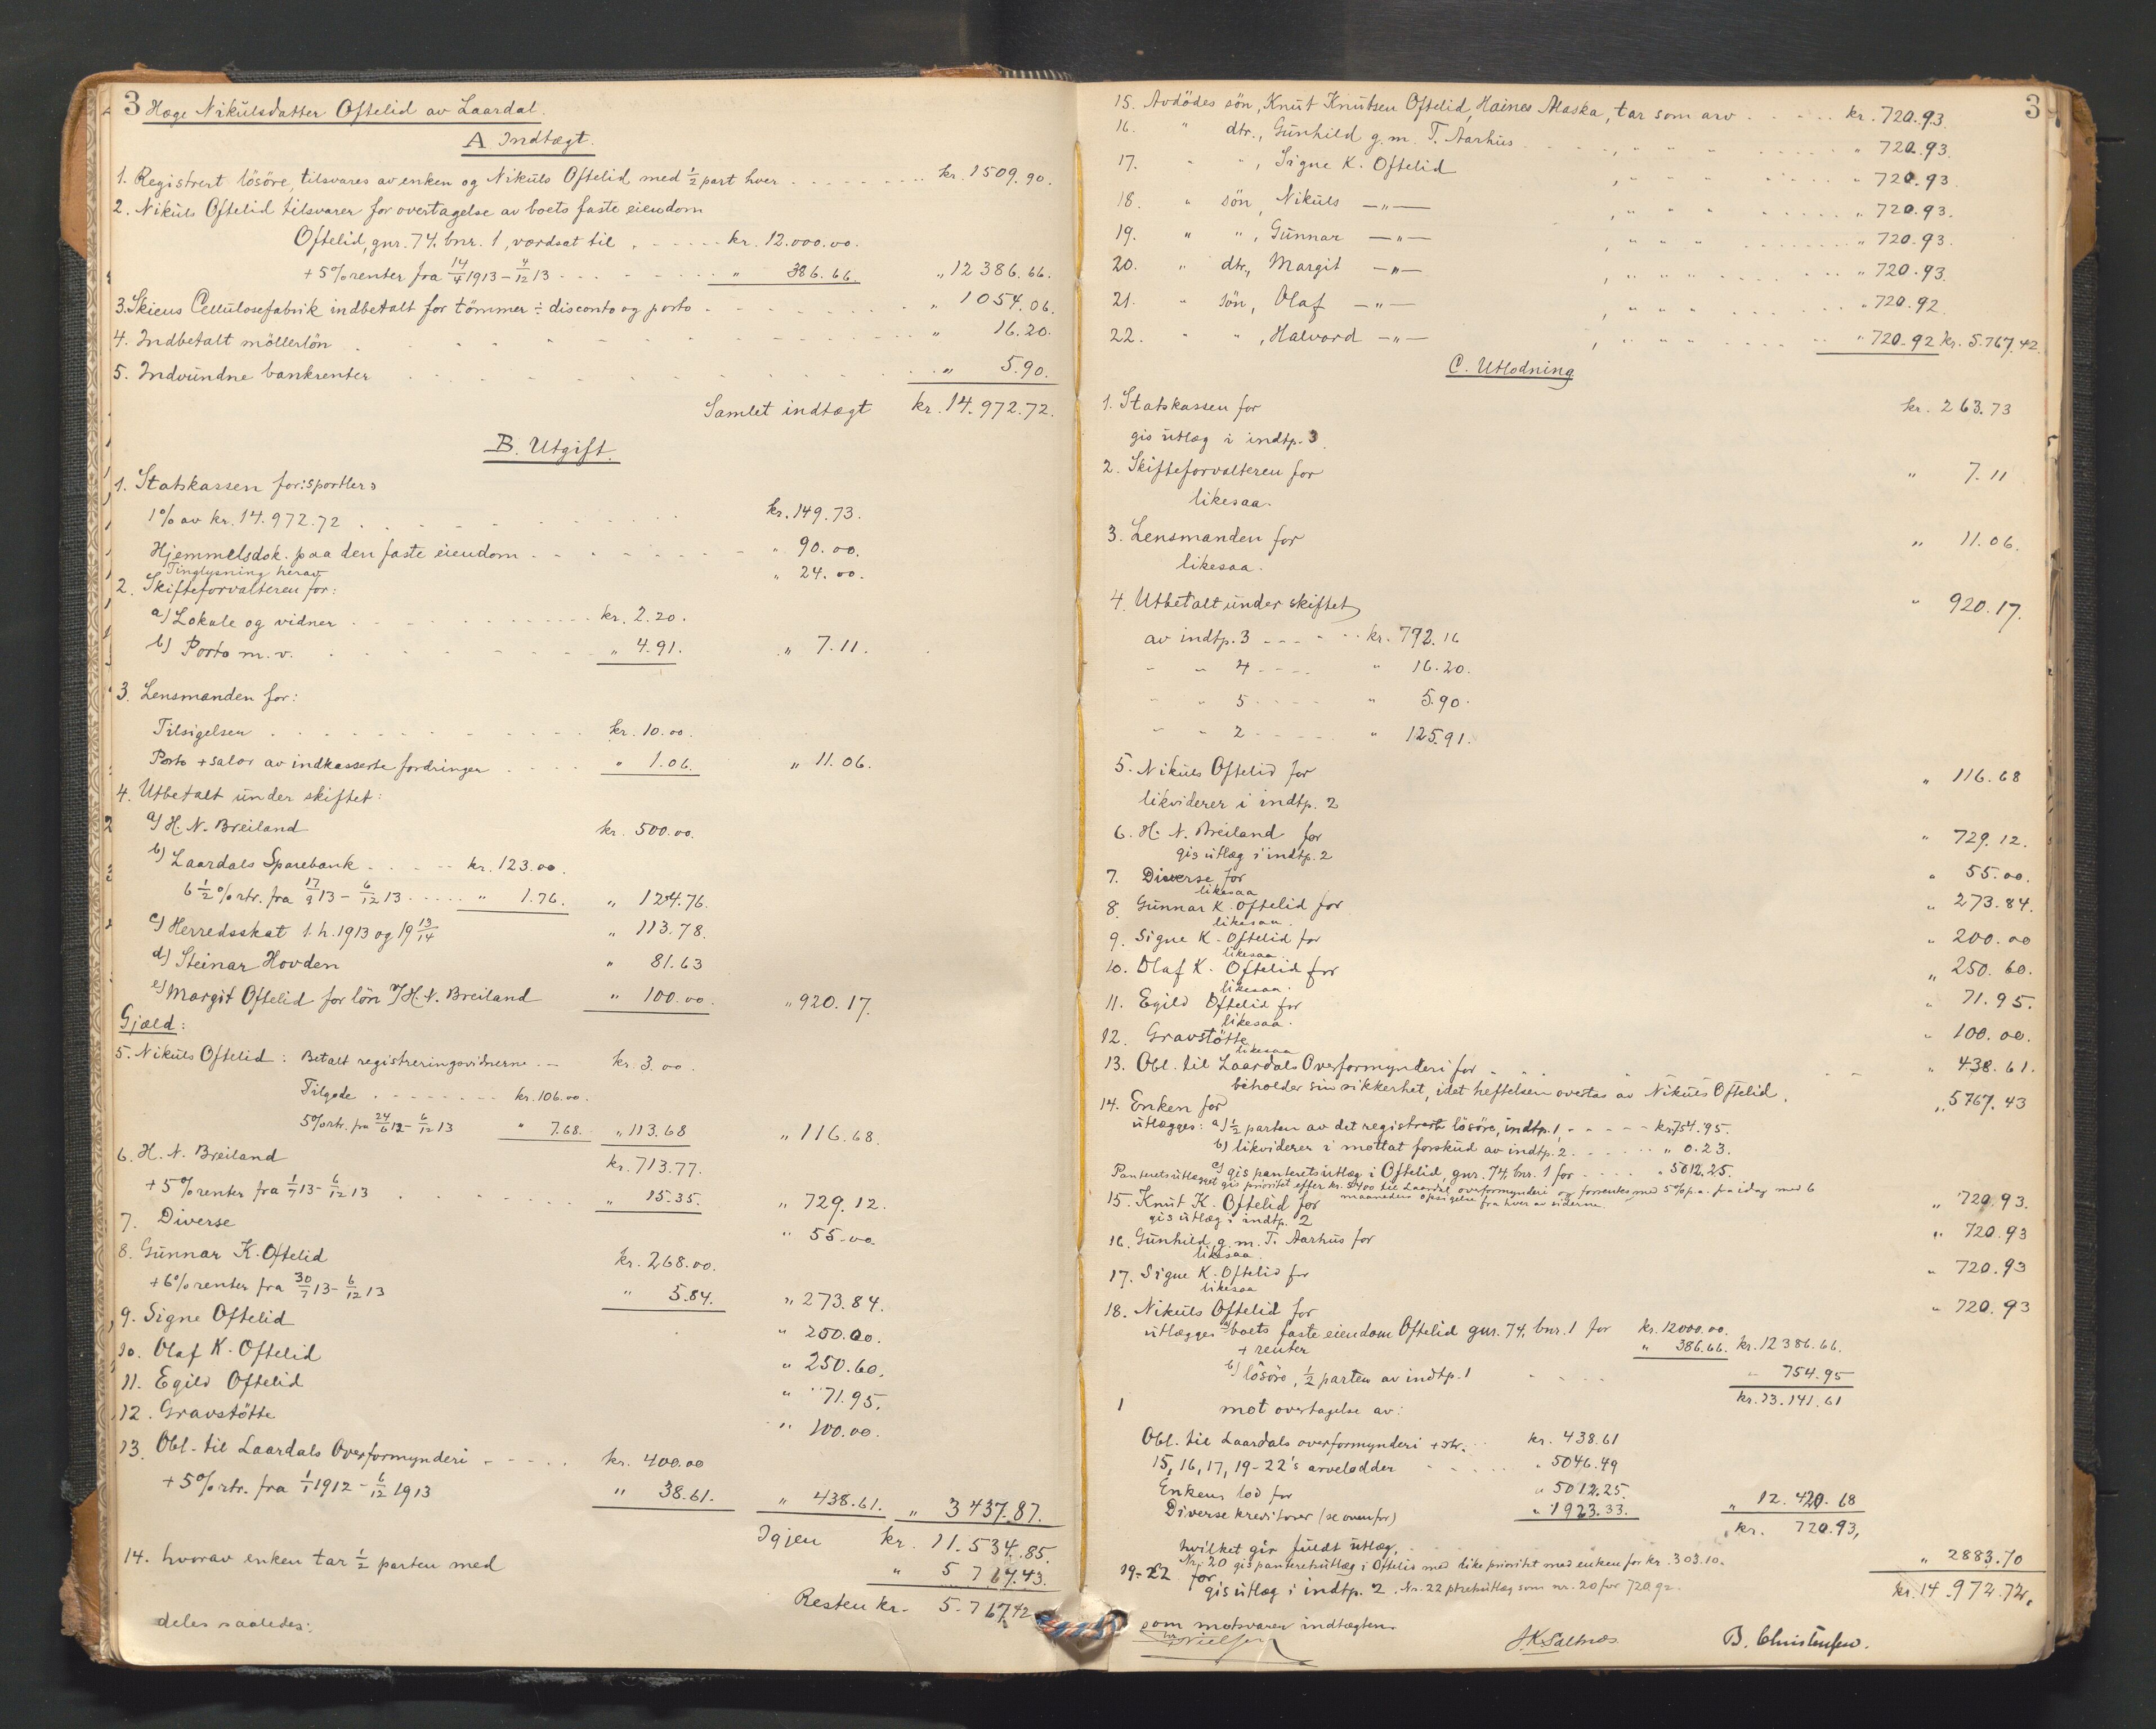 3 Hæge Nikulsdatter Oftelid av Laardal.
A Indtægt.
1. Registrert lösöre, tilsvares av enken og Nikuls Oftelid med 1/2 part hver . . . . kr. 1509.90.
2. Nikuls Oftelid tilsvarer for overtagelse av boets faste eiendom
Oftelid, gnr. 74, bnr. 1, værdsat til . . . . kr. 12.000.00.
+ 5% renter fra 14/4 1913 - 4/12 13 . . . . " 386.66. " 12386.66.
3. Skiens Cellulosefabrik indbetalt for tömmer ÷ disconto og porto . . . . " 1054.06.
4. Indbetalt möllerlön . . . . " 16.20.
5. Indvundne bankrenter . . . . " 5.90.
Samlet indtægt kr. 14.972.72.
B. Utgift.
1. Statskassen for: sportler:
1% av kr. 14.972.72 . . . . kr. 149.73.
Hjemmelsdok. paa den faste eiendom . . . . " 90.00.
Tinglysning herav " 24.00.
2. Skifteforvalteren for:
a) Lokale og vidner . . . . kr. 2.20.
b) Porto m.v. . . . . " 4.91. " 7.11.
3. Lensmanden for:
Tilsigelsen . . . . kr. 10.00.
Porto + salær av indkasserte fordringer . . . . " 1.06. " 11.06.
4. Utbetalt under skiftet:
a) H. N. Breiland kr. 500.00.
b) Laardals Sparebank . . . . kr. 123.00.
6 1/2 % rtr. fra 17/9 13 - 6/12 13 . . . . " 1.76. " 124.76.
c) Herredsskat 1. h. 1913 og 19 13/14 " 113.78.
d) Steinar Hovden " 81.63
e) Margit Oftelid for lön v/ H. N. Breiland " 100.00. " 920.17.
Gjæld:
5. Nikuls Oftelid: Betalt registreringsvidnerne . — kr. 3.00.
Tilgode . . . . kr. 106.00.
5% rtr. fra 24/6 12 - 6/12 13 " 7.68. " 113.68 " 116.68.
6. H. N. Breiland kr. 713.77.
+ 5% renter fra 1/7 13 - 6/12 13 . . . . " 15.35. " 729.12.
7. Diverse " 55.00
8. Gunnar K. Oftelid kr. 268.00.
+ 6% renter fra 30/7 13 - 6/12 13 " 5.84. " 273.84.
9. Signe Oftelid " 200.00.
10. Olaf K. Oftelid " 250.60.
11. Egild Oftelid " 71.95.
12. Gravstötte " 100.00.
13. Obl. til Laardals Overformynderi . . . . kr. 400.00
+ 5% rtr. fra 1/1 1912 - 6/12 1913 " 38.61. " 438.61. " 3437.87.
Igjen kr. 11.534.85.
14. hvorav enken tar 1/2 parten med " 5767.43.
Resten kr. 5.767.42
deles saaledes:
15. Avdödes sön, Knut Knutsen Oftelid, Haines Alaska, tar som arv . . . . kr. 720.93. 3
16. " dtr., Gunhild g.m. T. Aarhus . . . . , " " " . . . . " 720.93.
17. " " , Signe K. Oftelid , " " " . . . . " 720.93.
18. " sön, Nikuls —"— , " " " . . . . " 720.93.
19. " " , Gunnar —"— , " " " . . . . " 720.93.
20. " dtr., Margit —"— , " " " . . . . " 720.93.
21. " sön, Olaf —"— , " " " . . . . " 720.92.
22. " " , Halvord —"— , " " " . . . . " 720.92. kr. 5.767.42.
C. Utlodning
1. Statskassen for kr. 263.73
gis utlæg i indtp. 3.
2. Skifteforvalteren for " 7.11
likesaa.
3. Lensmanden for " 11.06.
likesaa.
4. Utbetalt under skiftet " 920.17.
av indtp. 3 . . . . kr. 792.16
" " 4 . . . . " 16.20.
" " 5 . . . . " 5.90.
" " 2 . . . . " 125.91.
5. Nikuls Oftelid for " 116.68
likviderer i indtp. 2
6. H. N. Breiland for " 729.12.
gis utlæg i indtp. 2
7. Diverse for " 55.00.
likesaa
8. Gunnar K. Oftelid for " 273.84.
likesaa.
9. Signe K. Oftelid for " 200.00
likesaa
10. Olaf K. Oftelid for " 250.60.
likesaa.
11. Egild Oftelid for " 71.95.
likesaa.
12. Gravstötte " 100.00.
likesaa
13. Obl. til Laardals Overformynderi for . . . . " 438.61.
beholder sin sikkerhet, idet heftelsen overtas av Nikuls Oftelid.
14. Enken for " 5767.43
utlægges: a) 1/2 parten av det registrerte lösöre, indtp. 1, . . . . kr. 754.95.
b) likviderer i mottat forskud av indtp. 2 . . . . " 0.23.
c) gis panteretsutlæg i Oftelid, gnr. 74, bnr. 1 for . . . . " 5012.25.
Panteretsutlægget gis prioritet efter kr. 5400 til Laardal overformynderi og forrentes med 5% p.a. fra idag med 6
maaneders opsigelse fra hver av siderne.
15. Knut K. Oftelid for " 720.93.
gis utlæg i indtp. 2
16. Gunhild g.m. T. Aarhus for " 720.93
likesaa.
17. Signe K. Oftelid for " 720.93
likesaa
18. Nikuls Oftelid for " 720.93
utlægges a) boets faste eiendom Oftelid gnr. 74, bnr. 1 for kr. 12000.00.
+ renter " 386.66. kr. 12386.66.
b) lösöre, 1/2 parten av indtp. 1 . . . . " 754.95
kr. 13.141.61
mot overtagelse av:
Obl. til Laardals overformynderi + rtr. . . kr. 438.61
15, 16, 17, 19-22's arvelodder . . . . " 5046.49
Enkens lod for " 5012.25.
Diverse kreditorer (se ovenfor) " 1923.33. " 12.420.68
kr. 720.93,
hvilket gir fuldt utlæg.
Nr. 20 gis panteretsutlæg i Oftelid med like prioritet med enken for kr. 303.10.
19-22 for " 2883.70
gis utlæg i indtp. 2. Nr. 22 ptretsutlæg som nr. 20 for 720.92.
kr. 14.972.72.
som motsvarer indtægten.
Nielsen JKSaltnes B. Christensen.